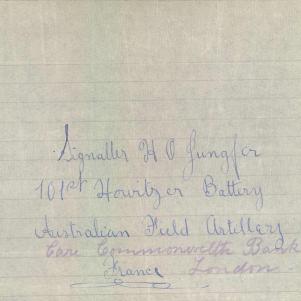 Signaller H O Jungfer
101st Howitzer Battery
Australian Field Artillery
Care Commonwelth Bank
France London